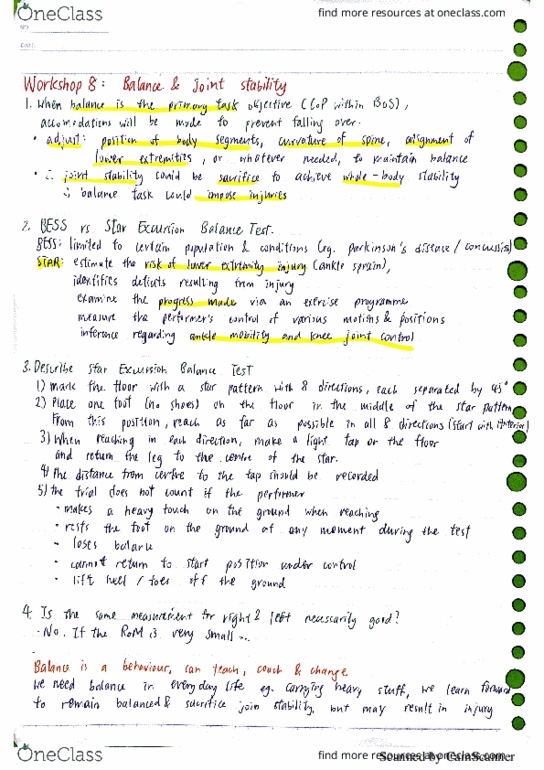 OneClass
find more resources at oneclass.com
NO.
DATE
Workshop 8: Balance & Joint stability
1. When balance is the primary task objective (CoP within BoS),
accomodations will be made to prevent falling over.
• adjust: position of body segments, curvature of spine, alignment of
lower extremities, or whatever needed, to maintain balance
• ∴ joint stability could be sacrifice to achieve whole-body stability
∴ balance task could impose injuries
2. BESS vs Star Excursion Balance Test.
BESS: limited to certain population & conditions (eg. parkinson's disease / concussion)
STAR: estimate the risk of lower extremity injury (ankle sprain),
identifies deficits resulting from injury
examine the progress made via an exercise programme
measure the performer's control of various motions & positions
inference regarding ankle mobility and knee joint control
3. Describe Star Excursion Balance Test
1) mark the floor with a star pattern with 8 directions, each separated by 45°
2) Place one foot (no shoes) on the floor in the middle of the star pattern
From this position, reach as far as possible in all 8 directions (start with anterior)
3) When reaching in each direction, make a light tap on the floor
and return the leg to the centre of the star.
4) the distance from centre to the tap should be recorded
5) the trial does not count if the performer
- makes a heavy touch on the ground when reaching
- rests the foot on the ground at any moment during the test
- loses balance
- cannot return to start position under control
- lift heel / toes off the ground
4. Is the same measurement for right & left necessarily good?
- No. If the RoM is very small ...
Balance is a behaviour, can teach, coach & change
We need balance in everyday life eg. carrying heavy stuff, we learn forward
to remain balanced & sacrifice join stability, but may result in injury
OneClass
find more resources at oneclass.com
Scanned by CamScanner